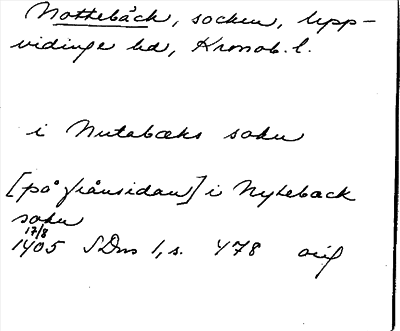 Nottebäck, socken, Upp-
vidinge hd, Kronob. l.
i Nutabæks sokn
[på frånsidan] i Nyteback
sokn
17/8
1405 SDns 1, s. 478 orig